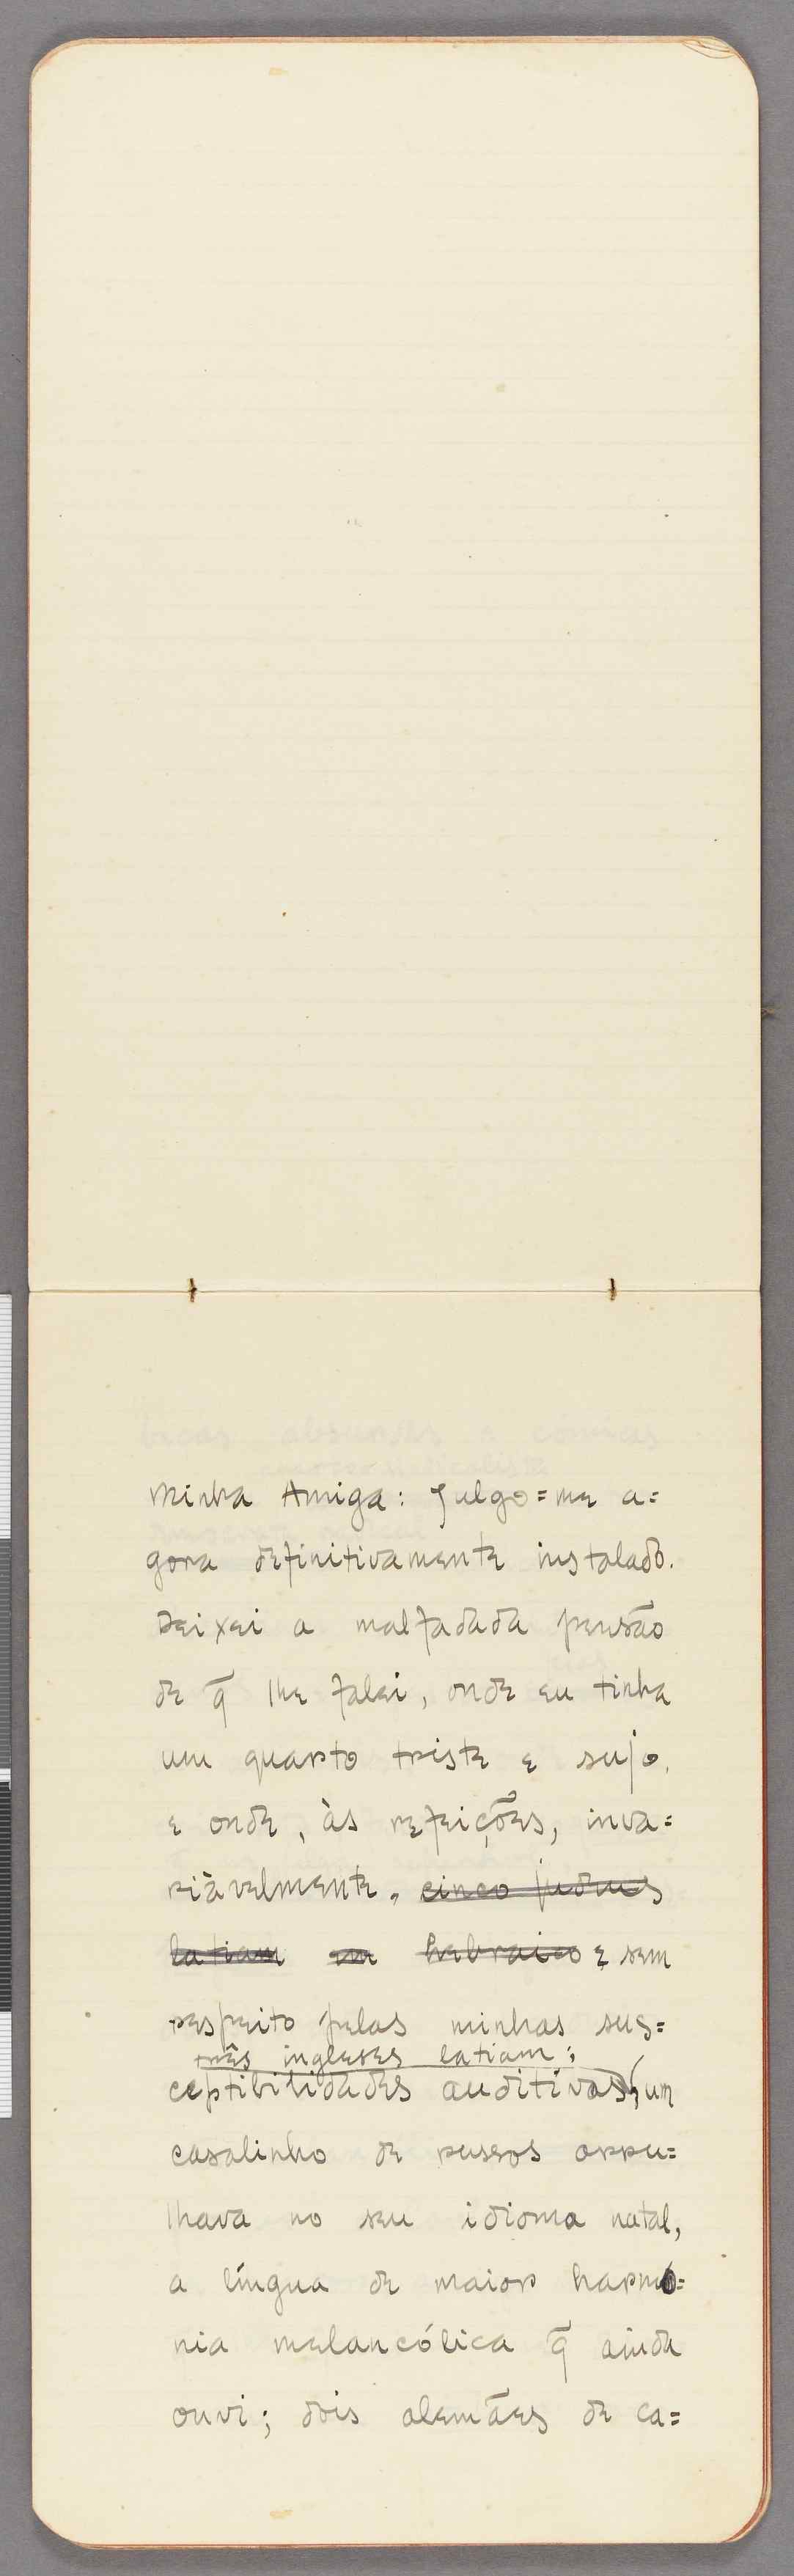 Minha Amiga: Julgo=me a=
gora definitivamente instalado.
Deixei a malfadada pensão
de q̃ lhe falei, onde eu tinha
um quarto triste e sujo,
e onde, às refeições, inva=
riàvelmente, cinco judeus
latiam em hebraico e sem
respeito pelas minhas sus=
três ingleses latiam;
ceptibilidades auditivas, um
casalinho de russos arru=
lhava no seu idioma natal,
a língua de maior harmo=
nia melancólica q̃ ainda
ouvi; dois alemães de ca=